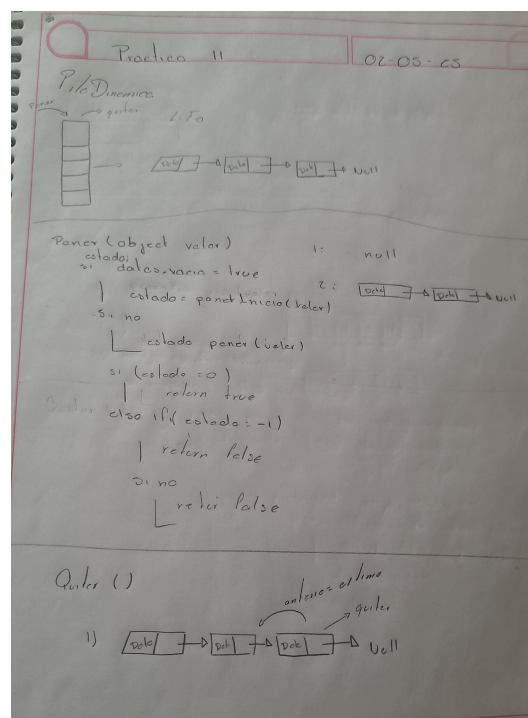 Practica 11
02-05-25
Pila Dinamica
poner quitar
LIFO
Dato Dato Dato Null
Poner (object valor)
estado;
si datos.vacio = true
estado= ponerInicio(valor)
si no
estado poner (valor)
si (estado =0)
return true
else if( estado: -1)
return false
si no
false
1: null
2: Dato Dato Null
Quitar ()
anterior= ultimo
quitar
1) Dato Dato Dato Null